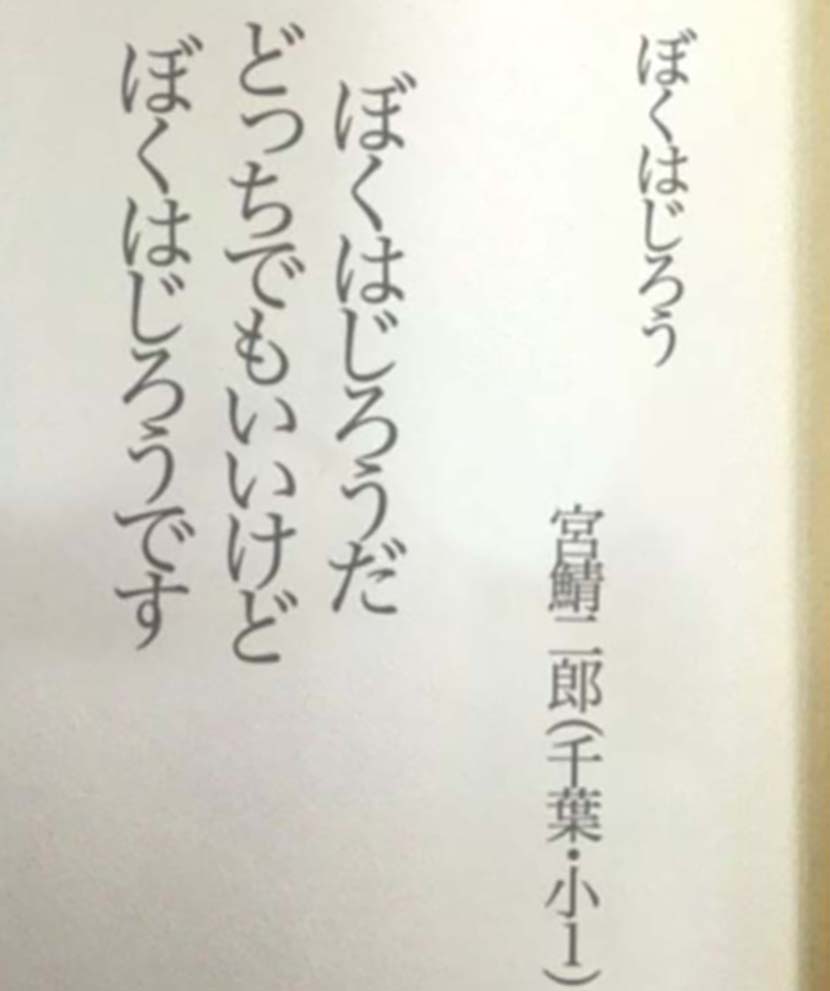 ぼくはじろう
宮鯖二郎(千葉・小1)
ぼくはじろうだ
どっちでもいいけど
ぼくはじろうです